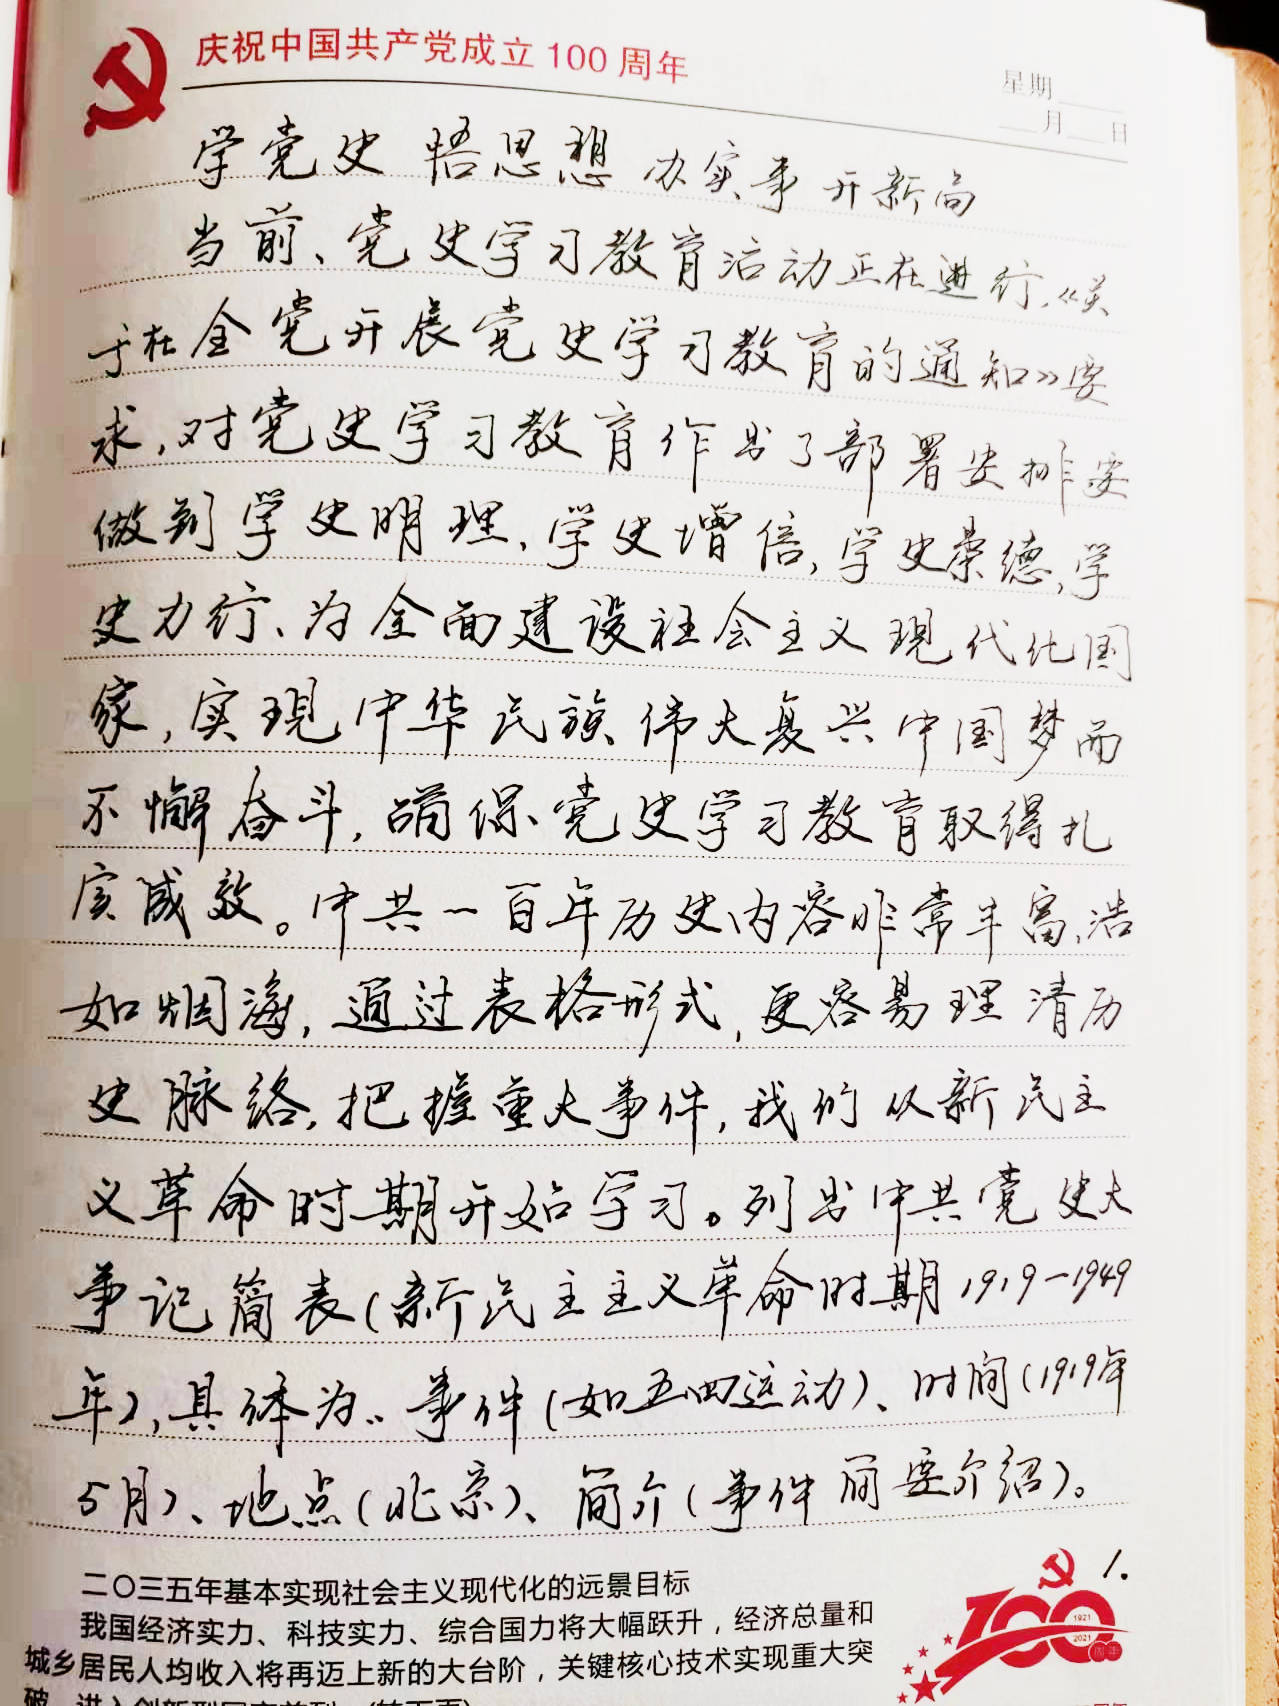 庆祝中国共产党成立100周年
星期
月 日
学党史 悟思想 办实事 开新局
当前、党史学习教育活动正在进行,《关
于在全党开展党史学习教育的通知》要
求,对党史学习教育作出了部署安排要
做到学史明理、学史增信,学史崇德,学
史力行、为全面建设社会主义现代化国
家,实现中华民族伟大复兴中国梦而
不懈奋斗,确保党史学习教育取得扎
实成效。中共一百年历史内容非常丰富,浩
如烟海,通过表格形式,更容易理清历
史脉络,把握重大事件,我们从新民主
义革命时期开始学习。列出中共党史大
事记简表(新民主主义革命时期1919-1949
年),具体为:事件(如五四运动)、时间(1919年
5月)、地点(北京)、简介(事件简要介绍)。
1.
二〇三五年基本实现社会主义现代化的远景目标
我国经济实力、科技实力、综合国力将大幅跃升,经济总量和
城乡居民人均收入将再迈上新的大台阶,关键核心技术实现重大突
破,进入创新型国家前列。(转下页)
100
1921
2021
周年